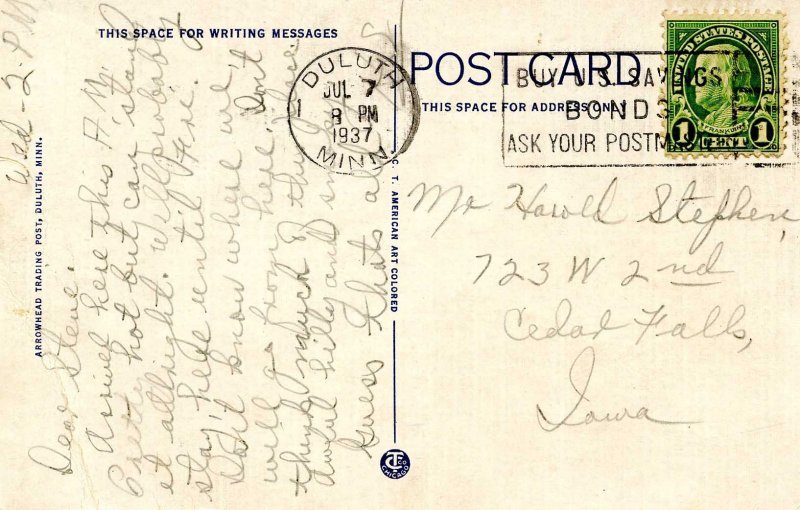 THIS SPACE FOR WRITING MESSAGES
Wed - 2 PM
Dear Steve.
Arrived here this A.M.
Pretty hot but can stand
it allright. Will probably
stay here until Fri.
Don't know where we
will go from here. Don't
think much of this place
awful hilly and
Guess thats all
ARROWHEAD TRADING POST, DULUTH, MINN.
C. T. AMERICAN ART COLORED
C T CO CHICAGO
POST CARD
THIS SPACE FOR ADDRESS ONLY
DULUTH
1
JUL 7
8 PM
1937
MINN.
BUY U.S. SAVINGS
BONDS
ASK YOUR POSTM
UNITED STATES POSTAGE
FRANKLIN
1 CENT 1
Mr Harold Stephen,
723 W 2nd
Cedar Falls,
Iowa